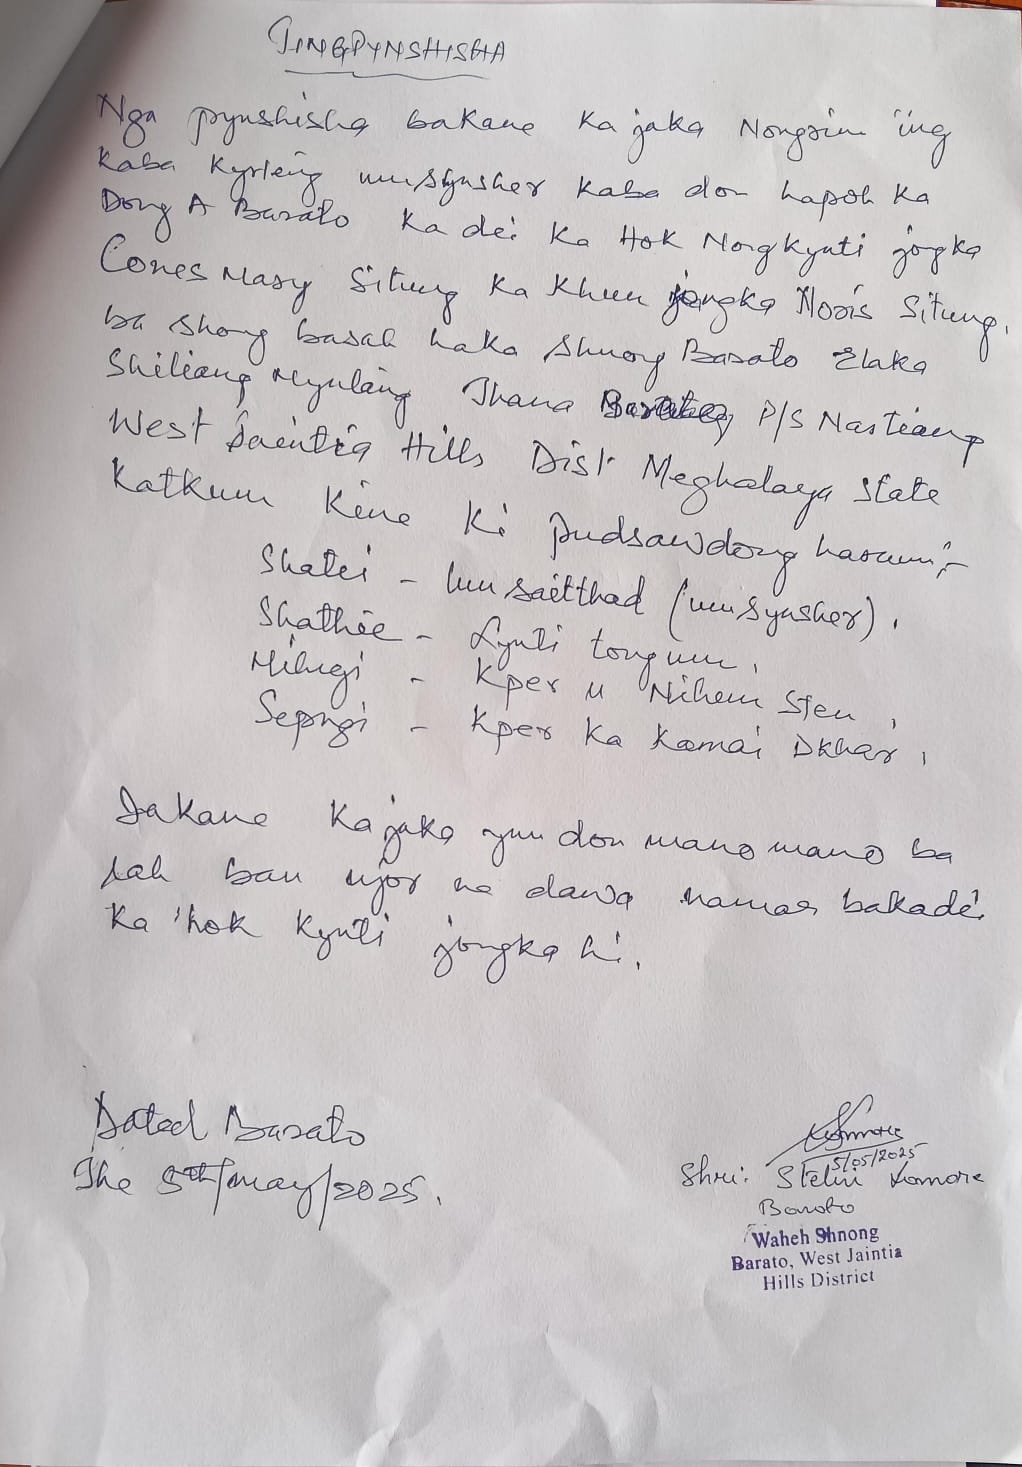 JINGPYNSHISHA
Nga pynshisha bakane ka jaka Nongrim ïing
kaba kyrteng umsynsher kaba don hapoh ka
Dong A Barato ka dei ka Hok Nongkynti jongka
Cones Mary Situng ka khun jongka Noris Situng,
ba shong basah haka shnong Barato Elaka
Shiliang Myntang Thana P/S Nartiang
West Jaintia Hills Dist Meghalaya State
Katkum kine ki pudsawdong harum;-
Shatei - Um saitthad (umsynsher),
Shathie - Lynti tongum,
Mihngi - Kper u Nihem Sten,
Sepngi - Kper ka Kamai Dkhar,
Iakane ka jaka ym don mano mano ba
lah ban ujor ne dawa namar bakadei
ka hok kynti jongka hi.
Dated Barato
The 5th/May/2025.
5/05/2025
Shri: Stelin Lamare
Barato
Waheh Shnong
Barato, West Jaintia
Hills District